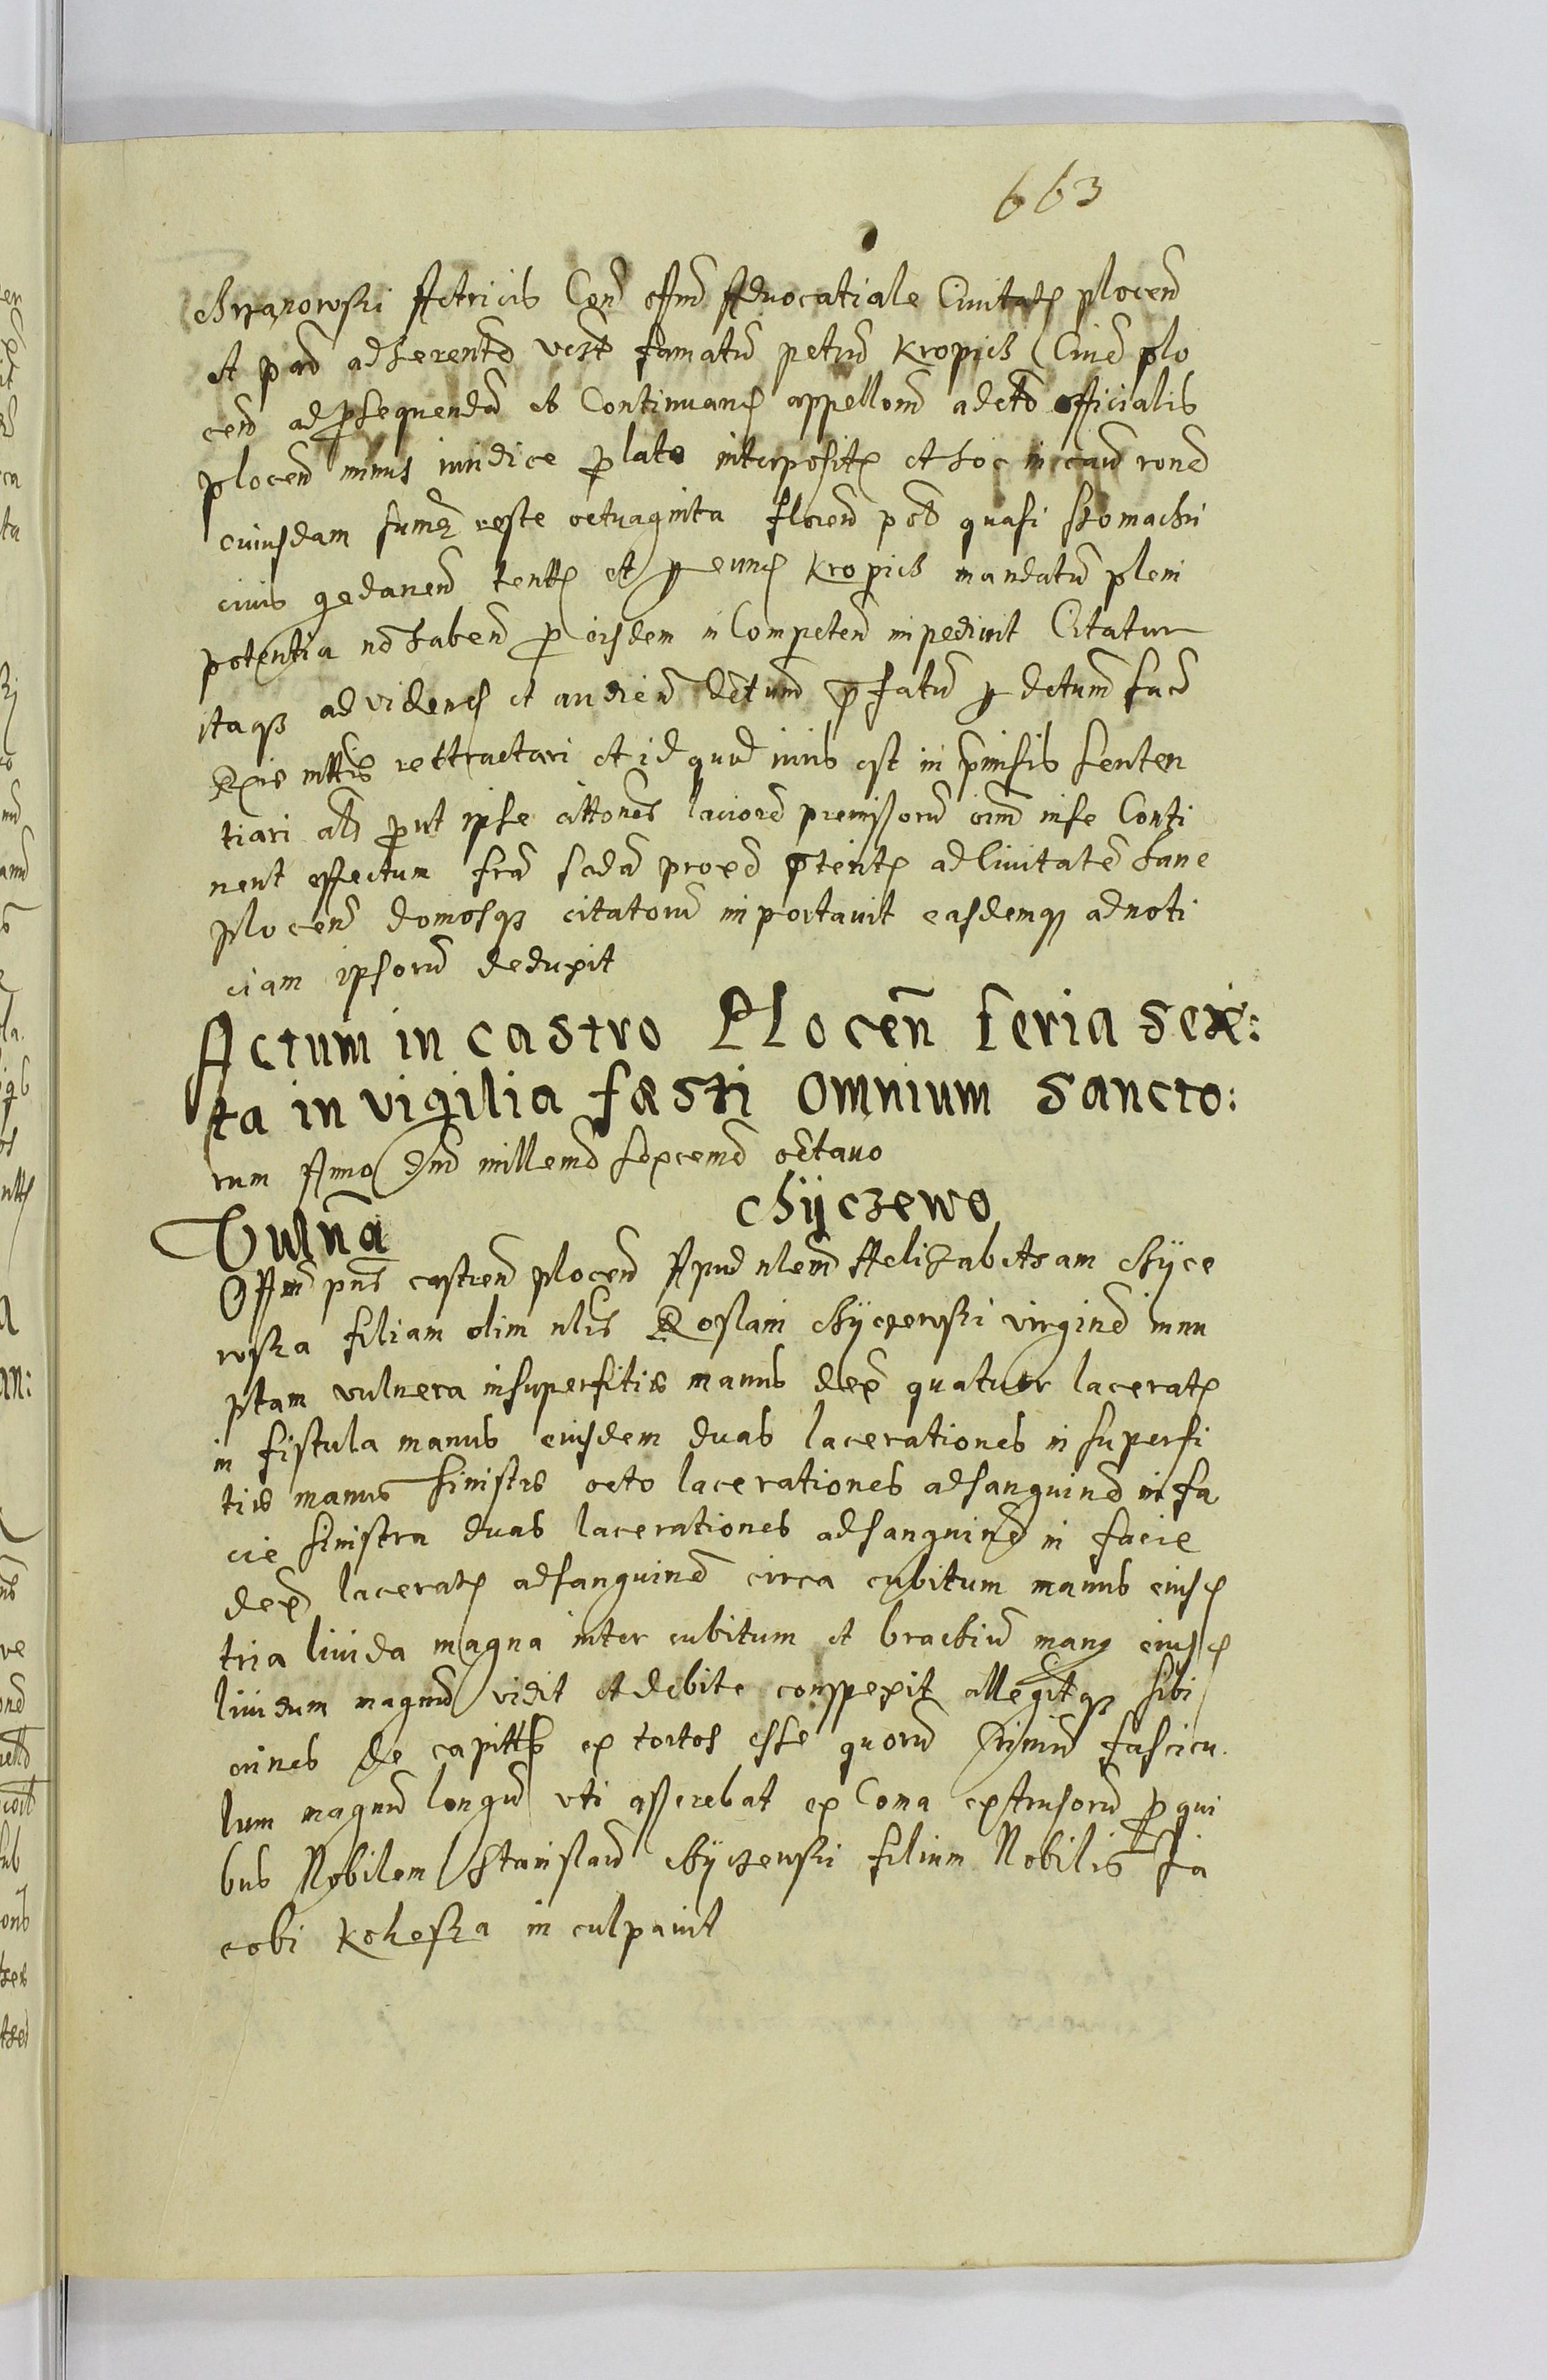 663
Chrzanowski Actricis Coñ offm̃ Advocatiale Civitatis plocen̄
et par̄ adherente vers̄ famatū petrū Kropich Civē plo
cen̄ ad prosequendā et Continuand appellonē a decto officialis
plocen̄ minus iuridice prolato interposite et hoc in cau͂ rone
cuiusdam sum̄e reste octuaginta floren̄ per quasi Stomachi
civis gedanen̄ tentte et per eund Kropich mandatū pleni
potentia nō haben̄ pro eisdem in Competen̄ impedivit Citatur
itaqȝ ad videnđ et audien̄ dectum prefatū per dictum fuc̄
Rxis mttis rettractari et id quod iuris est in premisis senten
tiari als prout ipse cittones laciorē premissorū oīm in se Conti
nent effectum frā scdā proxē ptente ad Civitatē hanc
plocen̄ domosqȝ citatorū importavit easdemqȝ ad noti
ciam ipsorū deduxit
Actum in castro Plocen̄ feria sex:
ta in vigilia fæsti omnium sancto:
rum Anno Dnī millemō sexcemō octavo
Chÿczewo
Vulnā
Offm̄ pn̄s castren̄ plocen̄ Apud nlem̄ Helizabetham Chÿce
wska filiam olim nlis Roslani Chÿczewski virginē innu
ptam vulnera in superfitie manus dex̄ quatuor laceratz
in fistula manus eiusdem duas lacerationes in superfi
tie manus sinistre octo lacerationes ad sanguinē in fa
cie sinistra duas lacerationes ad sanguinē in facie
dex̄ laceratz ad sanguinē circa cubitum manus eiusđ
tria livida magna inter cubitum et brachiū man9 eiusđ
lividum magnū vidit et debite conspexit allegitqȝ sibi
crines de capitte extortos esse quorū crinū fascicu
lum magnū longū uti asserebat ex Coma extrusorū pro qui
bus Nobilem Stanislaū Chÿczewski filium Nobilis Ja
cobi Koheska in culpavit